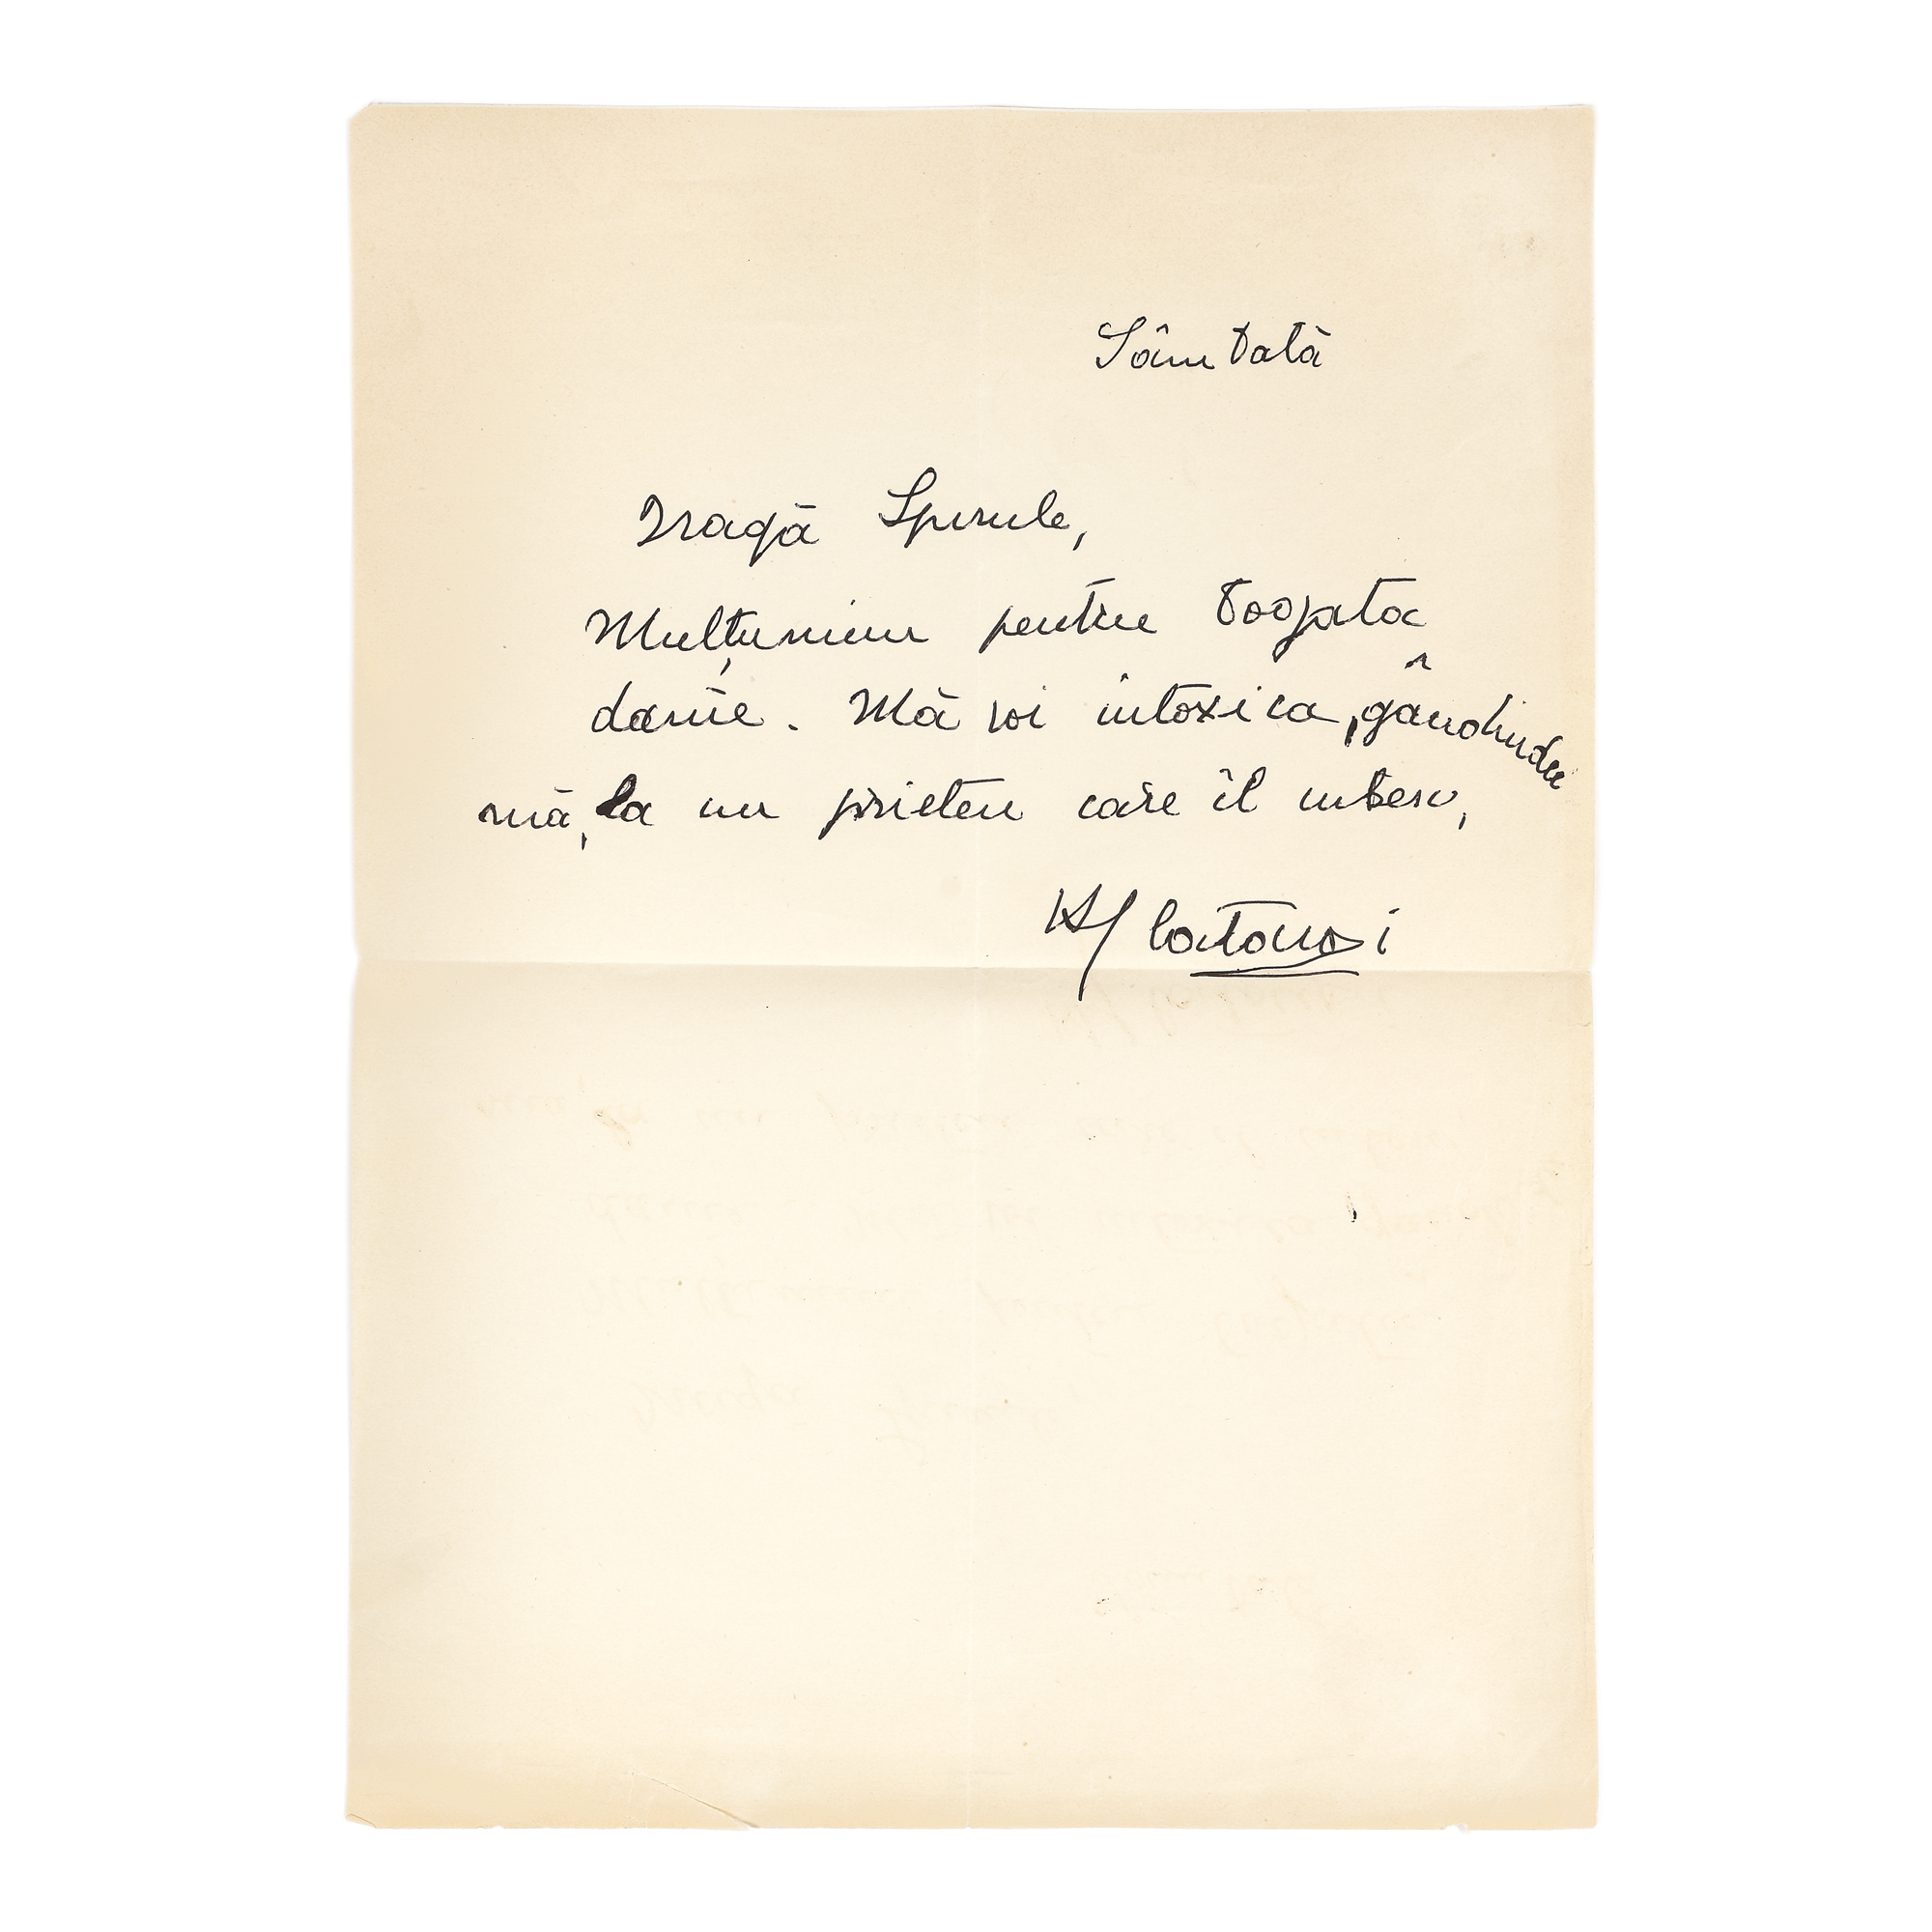 Sâmbată
Dragă Spirule,
Mulțumim pentru boogata
danie. Mă voi intoxica, gândindu
mă, la un prieten care îl iubesc,
Catargi